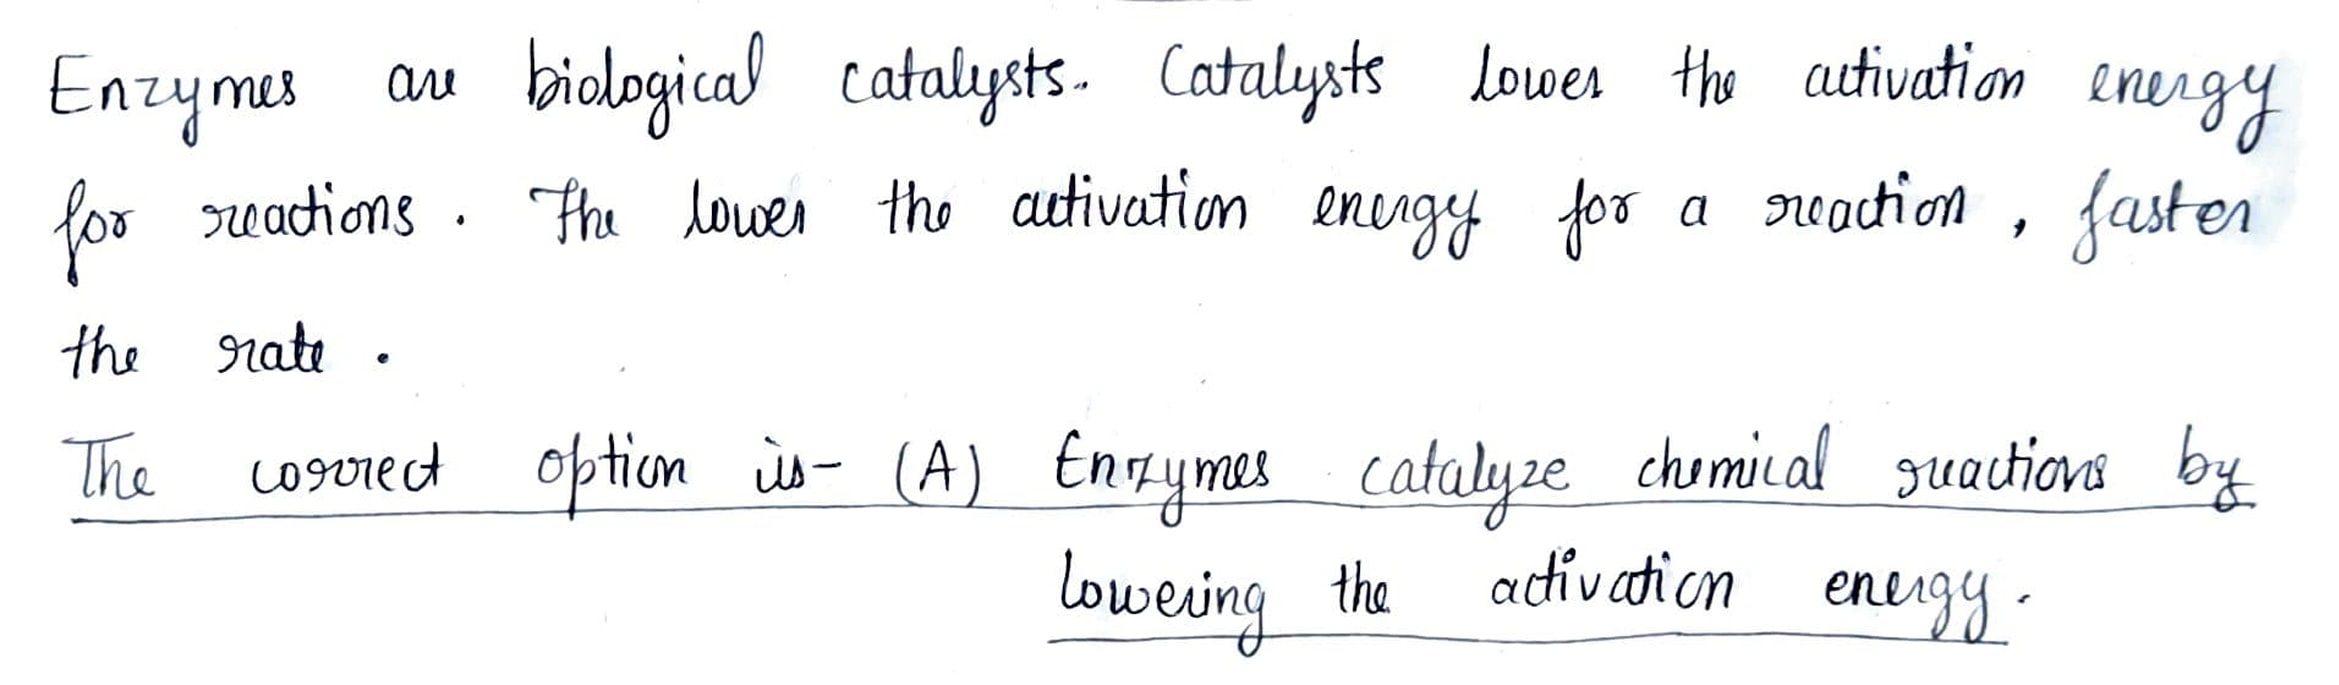 Enzymes are biological catalysts. Catalysts lower the activation energy
for reactions. The lower the activation energy for a reaction, faster
the rate.
The correct option is- (A) Enzymes catalyze chemical reactions by
lowering the activation energy.